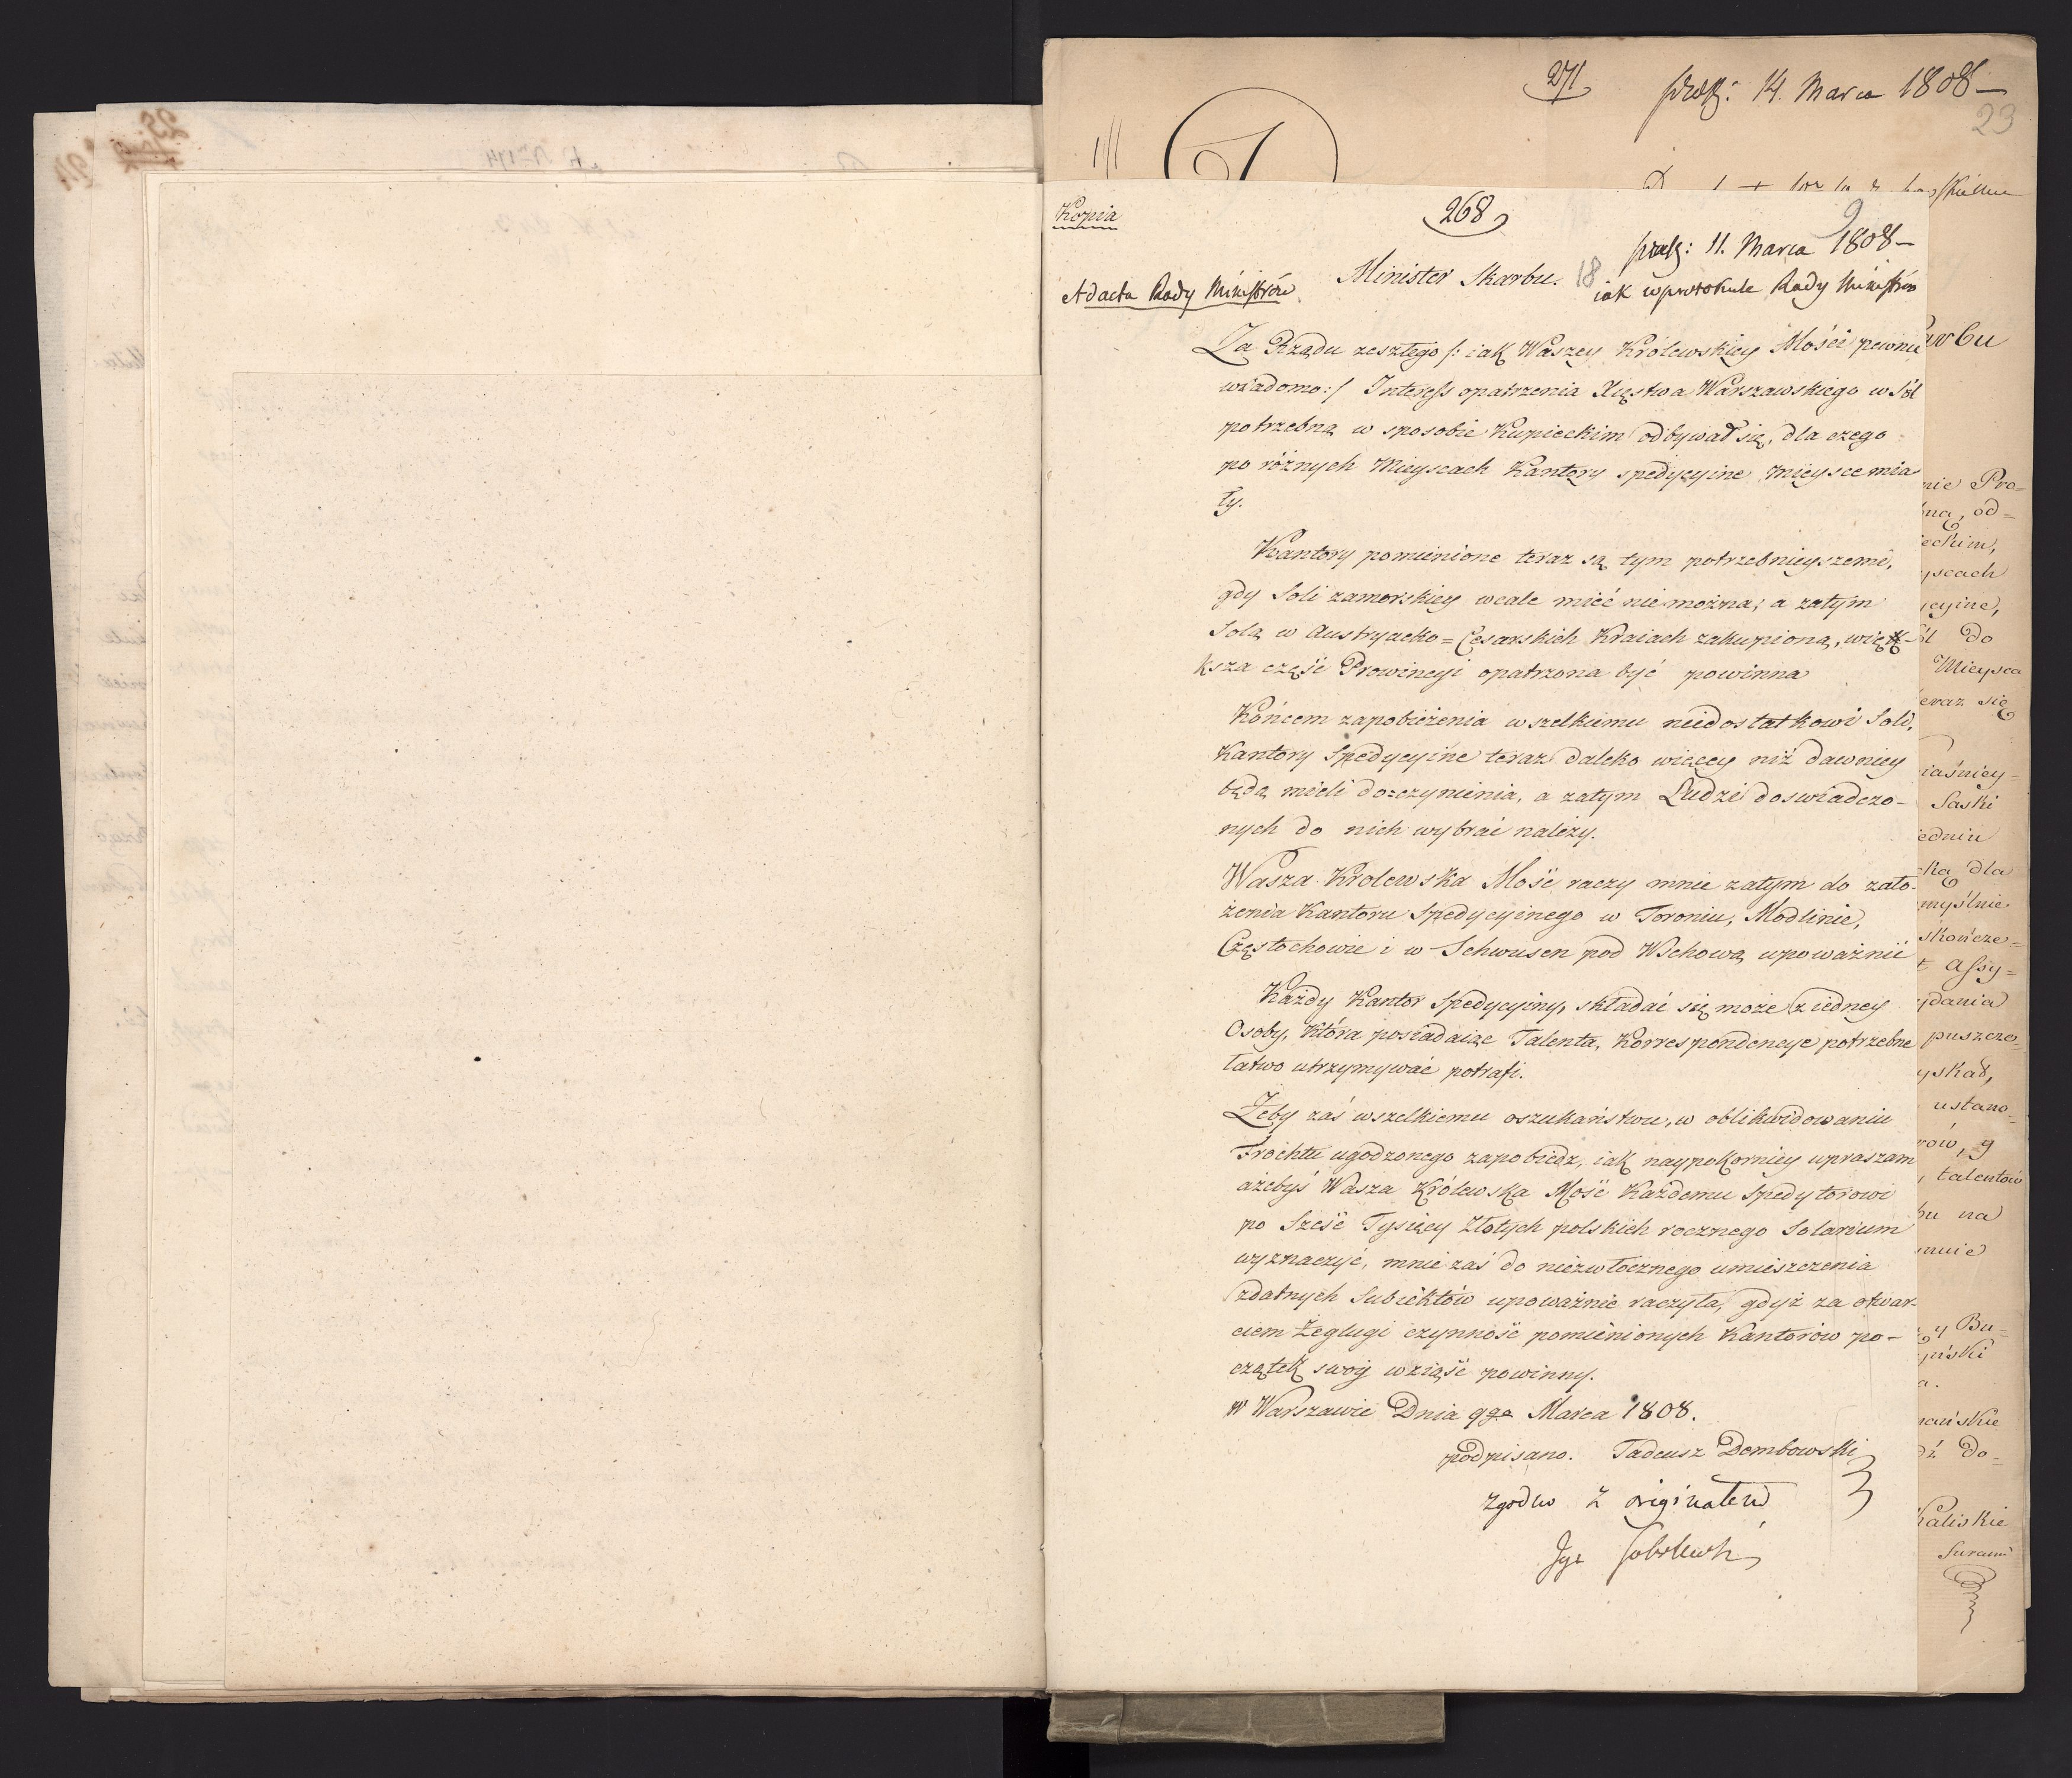 271
14. Marca 1808 —
23
Kopia
268
9
11. Marca 1808 —
Minister Skarbu.
18
iak w protokule Rady Ministrów
Ad acta Rady Ministrów
Za Rządu zeszłego /: iak Waszey Królewskiey Mości pewnie
wiadomo :/ Interess opatrzenia Xięstwa Warszawskiego w Sól
potrzebną w sposobie Kupieckim odbywał się, dla czego
po różnych Mieyscach Kantory spedycyine mieysce mia-
ły.
Kantory pomienione teraz są tym potrzebnieyszemi,
gdy Soli zamorskiey wcale mieć nie można; a zatym
Solą w Austryacko = Cesarskich Kraiach zakupioną, wię-
ksza część Prowincyi opatrzona być powinna
Końcem zapobieżenia wszelkiemu niedostatkowi Soli,
Kantory Spedycyine teraz daleko więcey niż dawniey
będą mieli do=czynienia, a zatym Ludzi doswiadczo-
nych do nich wybrać należy.
Wasza Krolewska Mość raczy mnie zatym do zało-
żenia Kantoru Spedycyinego w Toroniu, Modlinie,
Częstochowie i w Schwusen pod Wschową upoważnić
Każdy Kantor Spedycyiny, składać się może z iedney
Osoby, która posiadaiąc Talenta, Korrespondencye potrzebne
łatwo utrzymywać potrafi.
Żeby zaś wszelkiemu oszukaństwu, w oblikwidowaniu
Frochtu ugodzonego zapobiedz, iak naypokorniey upraszam
ażebyś Wasza Królewska Mość Każdemu Spedytorowi
po Sześć Tysięcy Złotych polskich rocznego Solarium
wyznaczyć, mnie zaś do niezwłocznego umieszczenia
zdatnych Subiektów upoważnić raczyła, gdyż za otwar-
ciem Żeglugi czynność pomienionych Kantorów po-
czątek swóy wziąść powinny.
w Warszawie Dnia 9go Marca 1808.
podpisano. Tadeusz Dembowski
Zgodno z originałem
Sobolewski